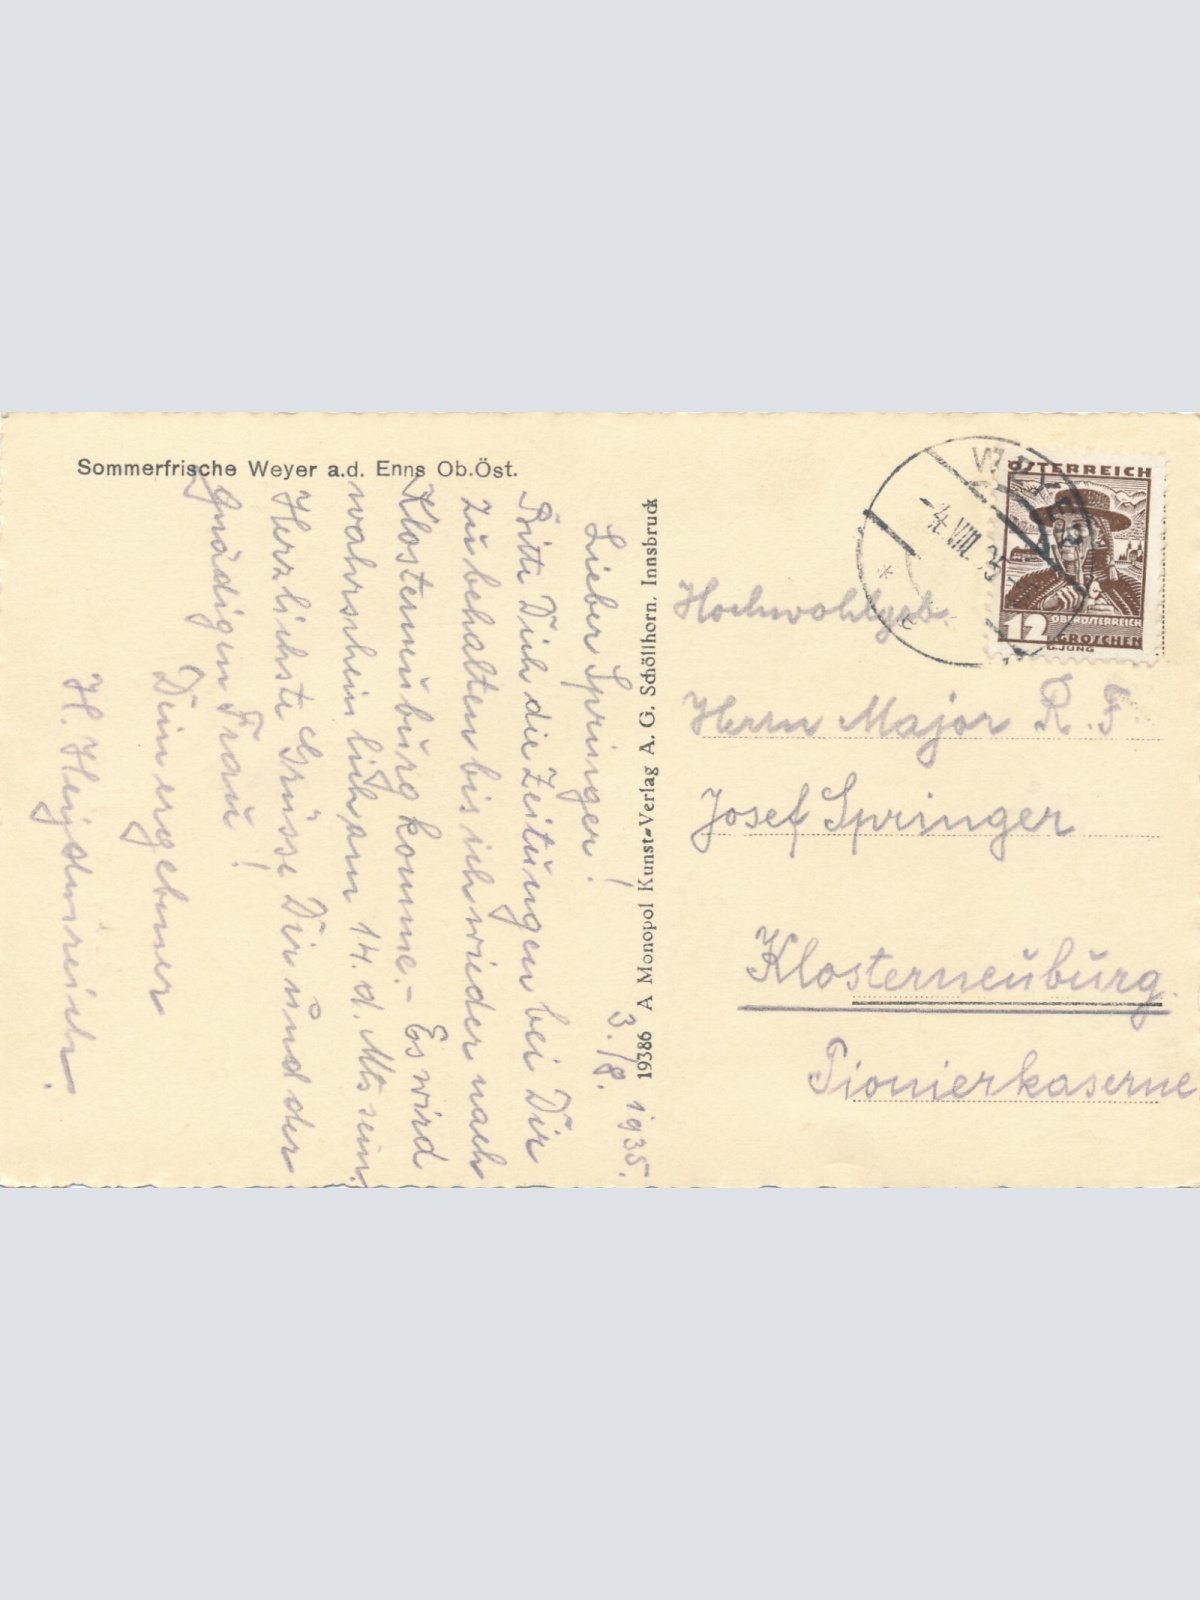 Sommerfrische Weyer a.d. Enns Ob.Öst.
3./8. 1935.
Lieber Springer!
Bitte Dich die Zeitungen bei Dir
zu behalten bis ich wieder nach
Klosterneuburg komme. - Es wird
wahrscheinlich am 14. d. Mts sein.
Herzlichste Grüsse Dir und der
Gnädigen Frau!
Dein ergebener
H.
19386 A Monopol Kunst-Verlag A. G. Schöllhorn, Innsbruck
-4.VIII.35
ÖSTERREICH
12
OBERÖSTERREICH
GROSCHEN
G.JUNG
Hochwohlgeb.
Herrn Major R. F.
Josef Springer
Klosterneuburg.
Pionierkaserne